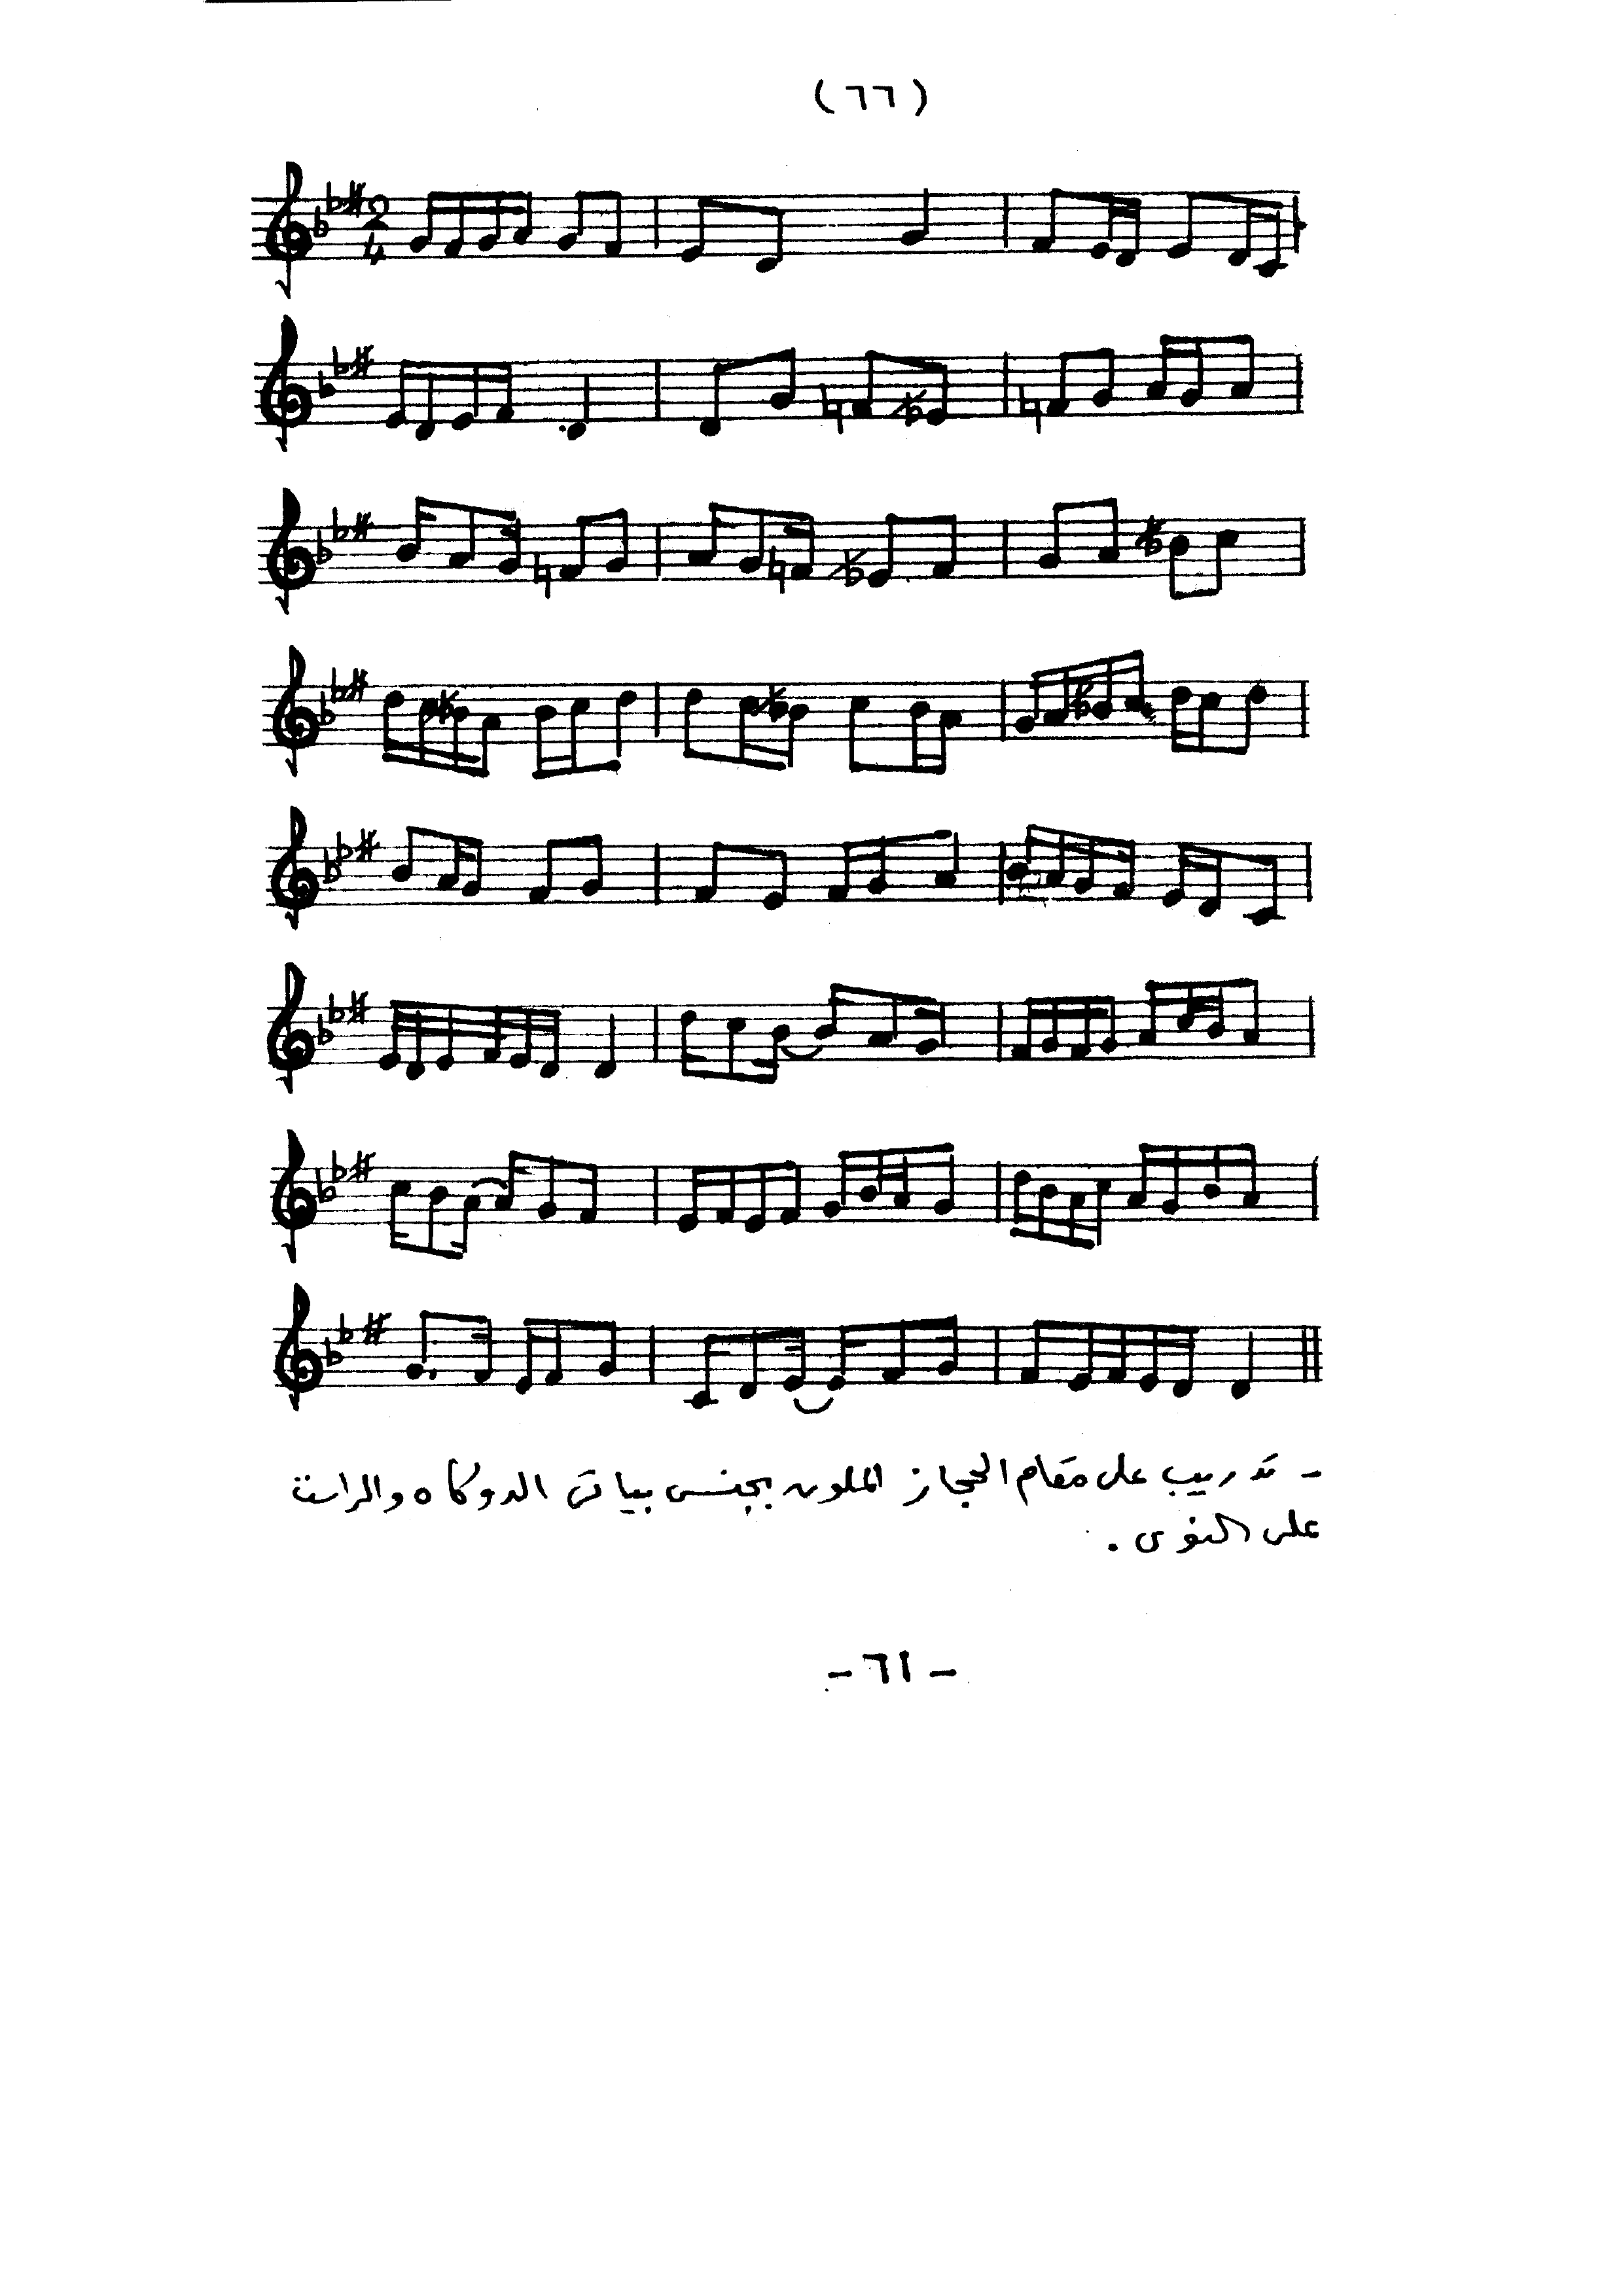 (٦٦)
2
4
- تدريب على مقام الحجاز الملون بجنس بياتي الدوكاه والراست
على النوى .
- ٦١ -